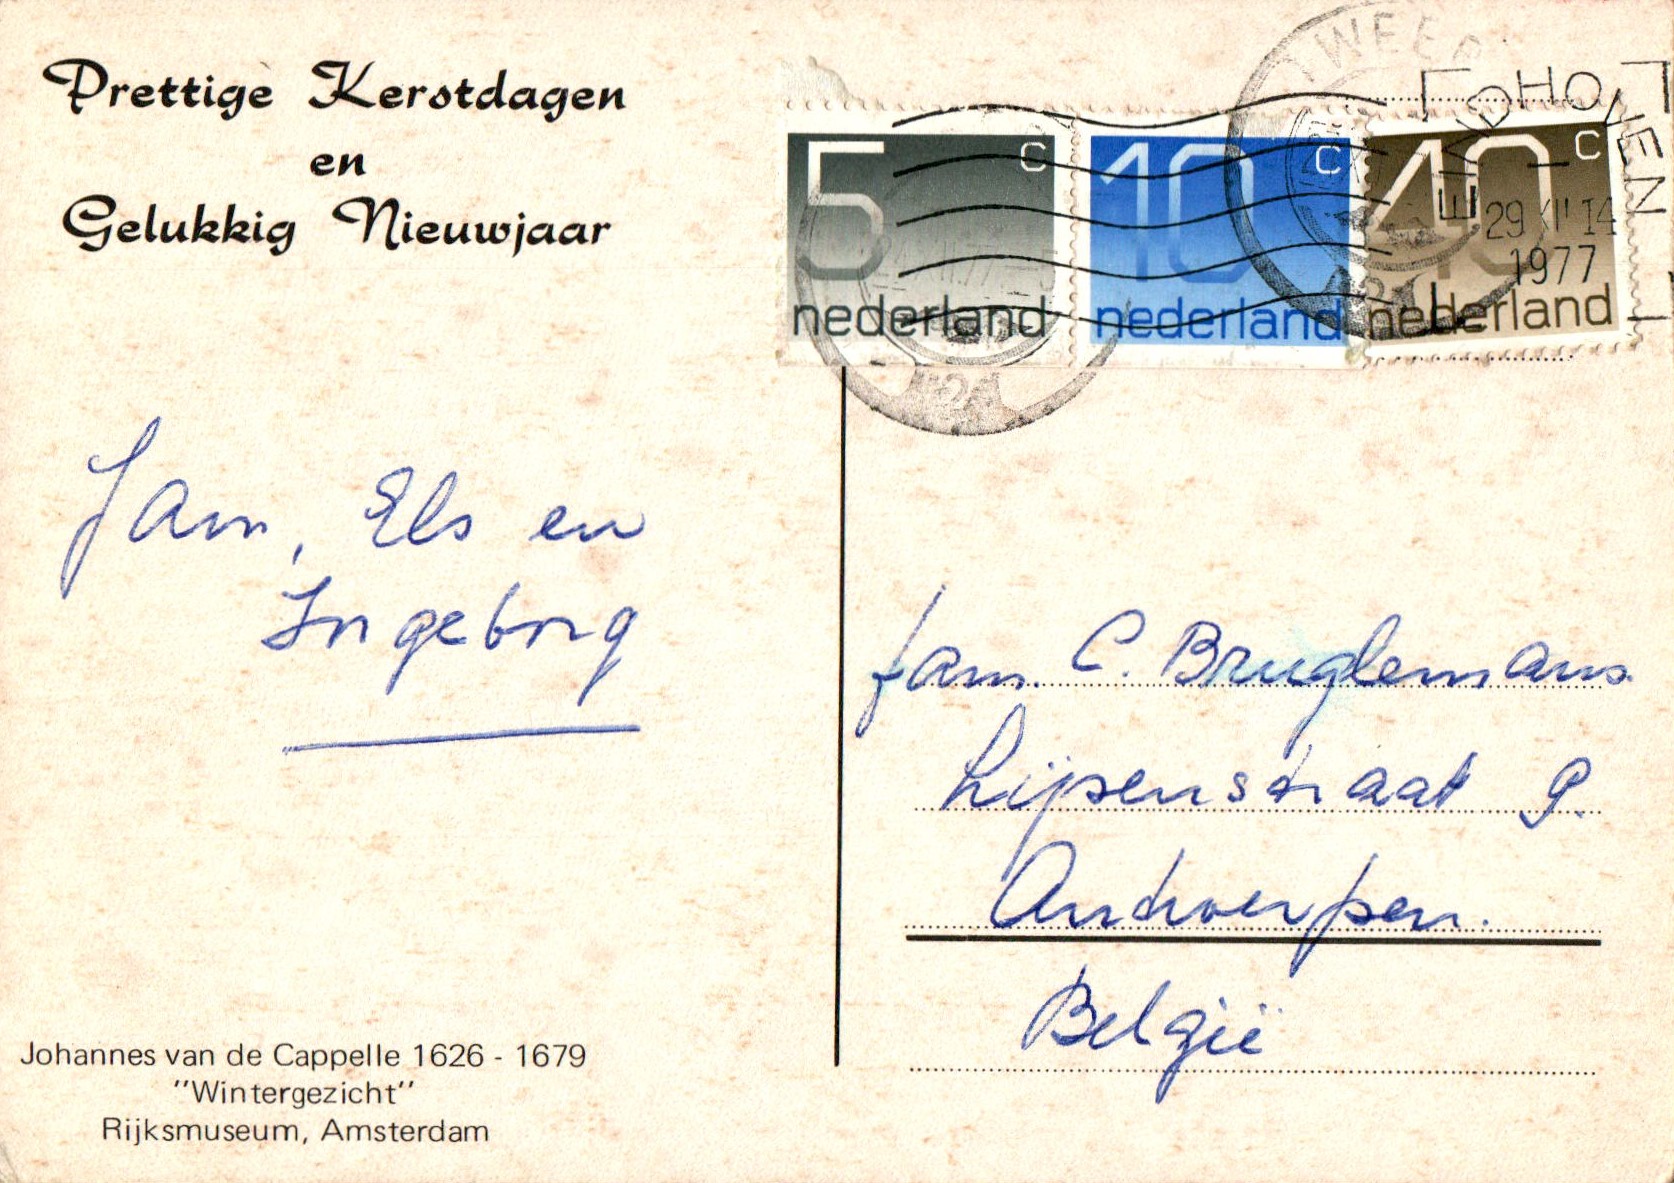 Prettige Kerstdagen
en
Gelukkig Nieuwjaar
5 c
nederland
10 c
nederland
40 c
nederland
EINDHOVEN
29 XII 14
1977
Jan, Els en
Ingeborg
fam. C. Bruglemans
Lijsenstraat 9.
Antwerpen.
België
Johannes van de Cappelle 1626 - 1679
"Wintergezicht"
Rijksmuseum, Amsterdam